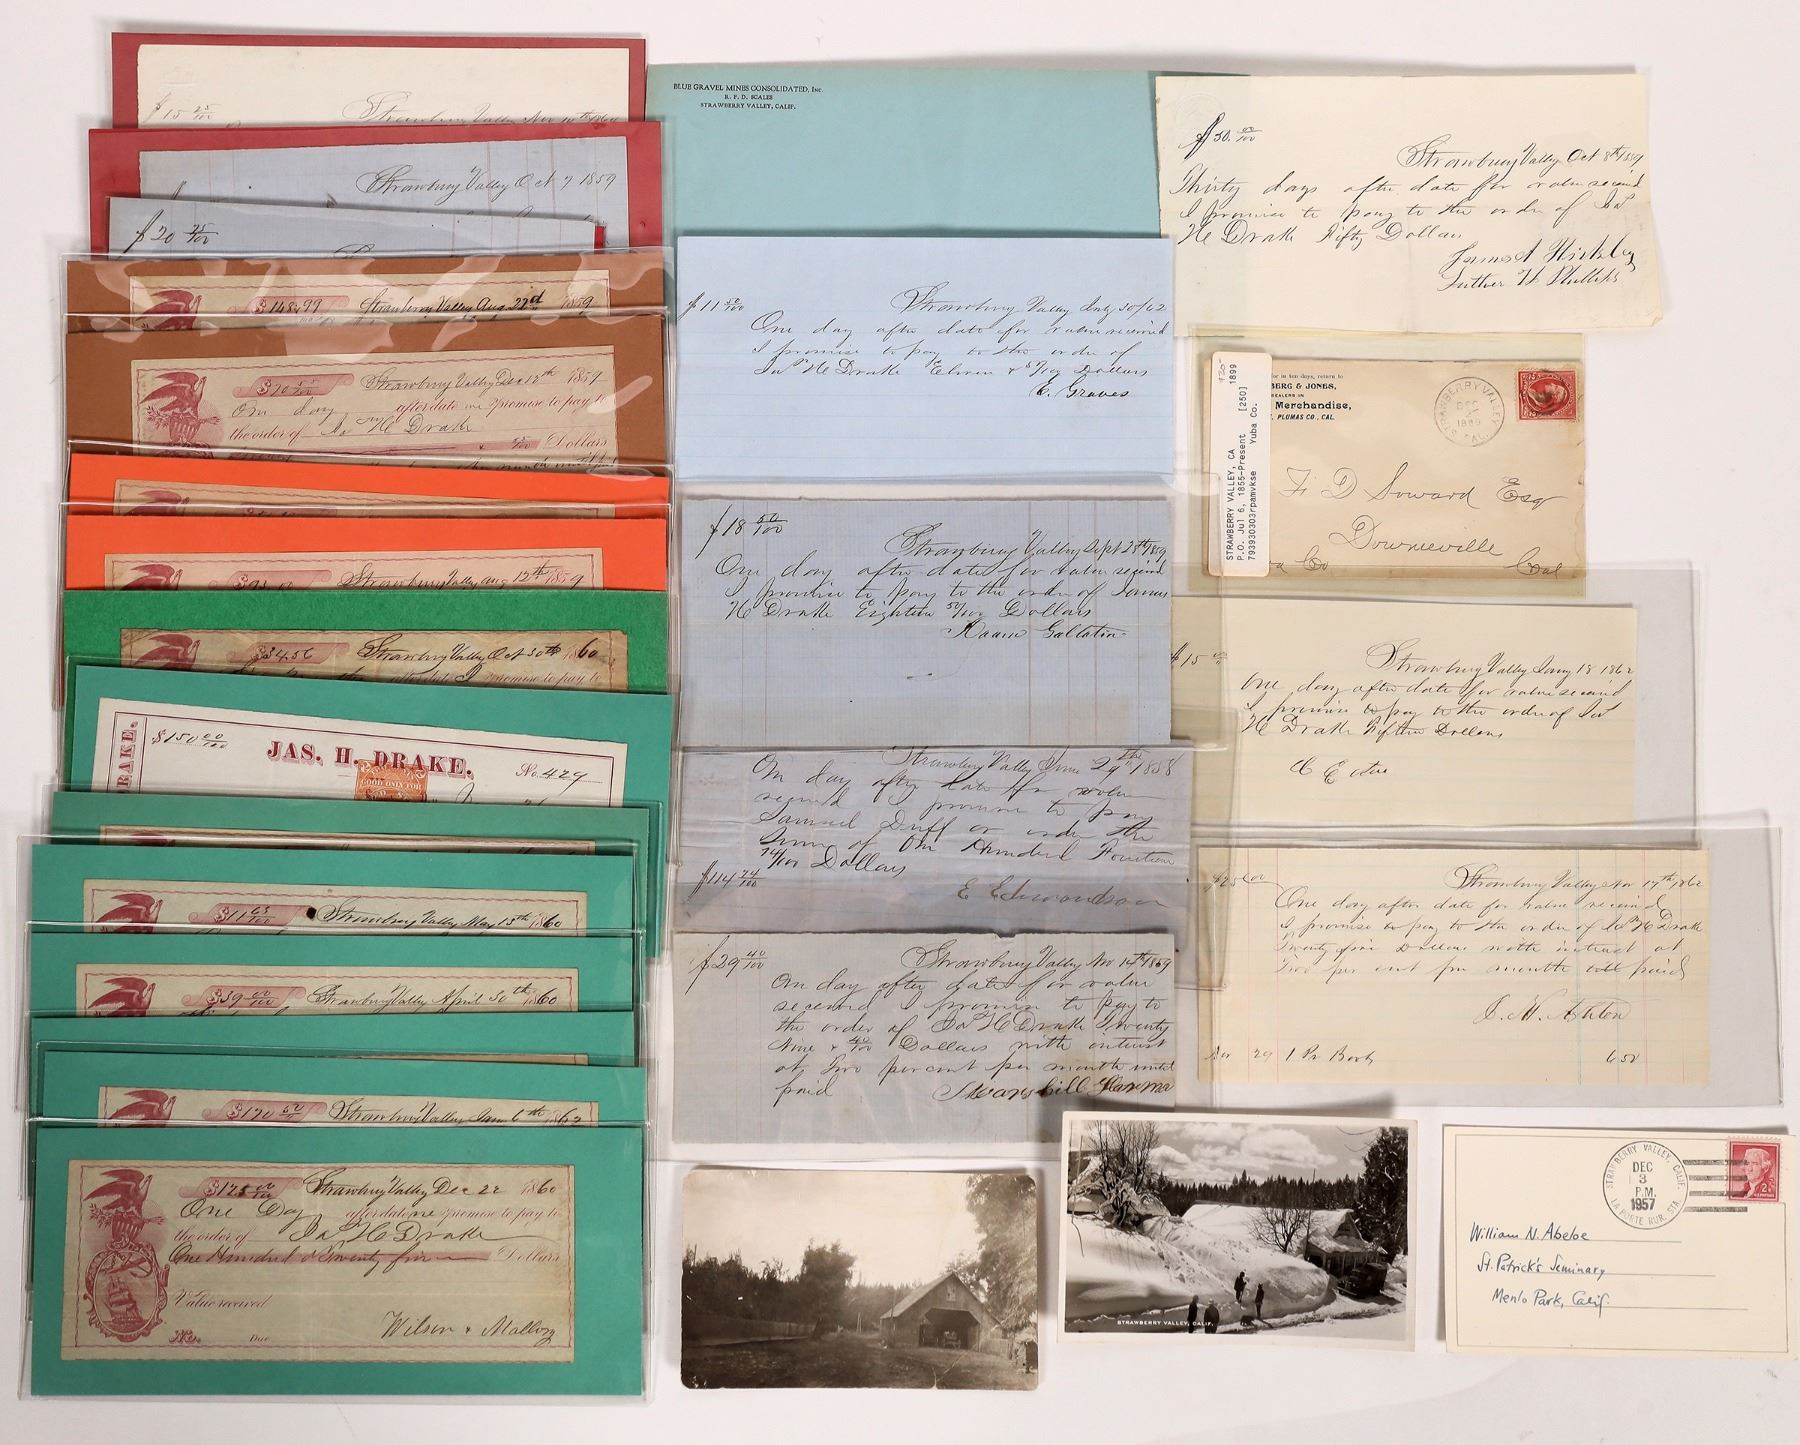 $15 25/100
Strawberry Valley Nov 10th 1860
Strawberry Valley Oct 7 1859
$20 25/100
$148.99 Strawberry Valley Aug. 22d 1859
Strawberry Valley Dec 12th 1859
One day after date we promise to pay to
the order of Jas H Drake
Dollars
Strawberry Valley Aug 12th 1859
$34.56 Strawberry Valley Oct 30th 1860
promise to pay to
$150 00/100
JAS. H. DRAKE.
No. 429
RAKE.
GOOD ONLY FOR
$11 65/100 Strawberry May 15th 1860
$39 00/100 Strawberry Valley April 30th 1860
Strawberry Valley Jany 6th 1862
$125 00/100 Strawberry Valley Dec 22 1860
One Day after date we promise to pay to
the order of Jas H Drake
One Hundred & Twenty five Dollars
Value received
No. Due
Wilson & Mallory
BLUE GRAVEL MINES CONSOLIDATED, Inc.
R. F. D. SCALES
STRAWBERRY VALLEY, CALIF.
$11 50/100
Strawberry Valley July 30/62
One day after date for value received
I promise to pay to the order of
Jas H Drake Eleven & 50/100 Dollars
E. Graves
$18 50/100
Strawberry Valley Sept 28th 1859
One day after date for value received
I promise to pay to the order of James
H Drake Eighteen 50/100 Dollars
Gallatin
Strawberry Valley June 29th 1858
On day after date for value
received I promise to pay
Samuel Duff or order the
Sum of One Hundred Fourteen
74/100 Dollars
$114 74/100
E Edmondson
$29 40/100
Strawberry Valley Nov 14th 1859
On day after date for value
received I promise to pay to
the order of Jas H Drake Twenty
Nine & 40/100 Dollars with interest
at Two per cent per month until
paid
$50. 00/100
Strawberry Valley Oct 8th 1859
Thirty days after date for value received
I promise to pay to the order of Jas
H Drake Fifty Dollars
Luther W Phillips
STRAWBERRY VALLEY, CA [250] 1899
P.O. Jul 6, 1855-Present Yuba Co.
793930303rpamvkse
for in ten days, return to
BERG & JONES,
DEALERS IN
Merchandise,
PLUMAS CO., CAL.
STRAWBERRY VALLEY
DEC
CAL.
F D Soward Esq
Downieville
Co Cal
$15 00
Strawberry Valley Jany 18 1862
One day after date for value received
I promise to pay to the order of Jas
H Drake Fifteen Dollars
$25 00
Strawberry Valley Nov 17th, 1862
One day after date for value received
I promise to pay to the order of Jas H Drake
Twenty five Dollars with interest at
Two per cent per month till paid
J. H. Ashton
Nov 29 1 Pr Boots 6 50
STRAWBERRY VALLEY, CALIF.
STRAWBERRY VALLEY, CALIF.
DEC
3
P.M.
1957
LA PORTE RUR. STA.
2¢
William N. Abeloe
St. Patrick's Seminary
Menlo Park, Calif.